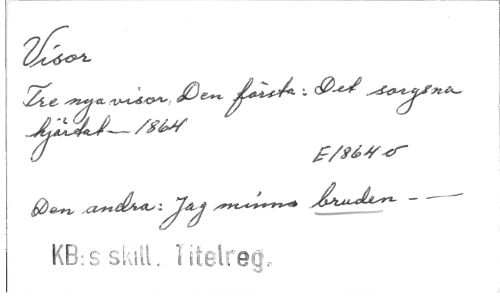 Visor
Tre nya visor. Den första: Det sorgsna
hjärtat — 1864
E1864 o
Den andra: Jag minns bruden - —
KB:s skill. Titelreg.